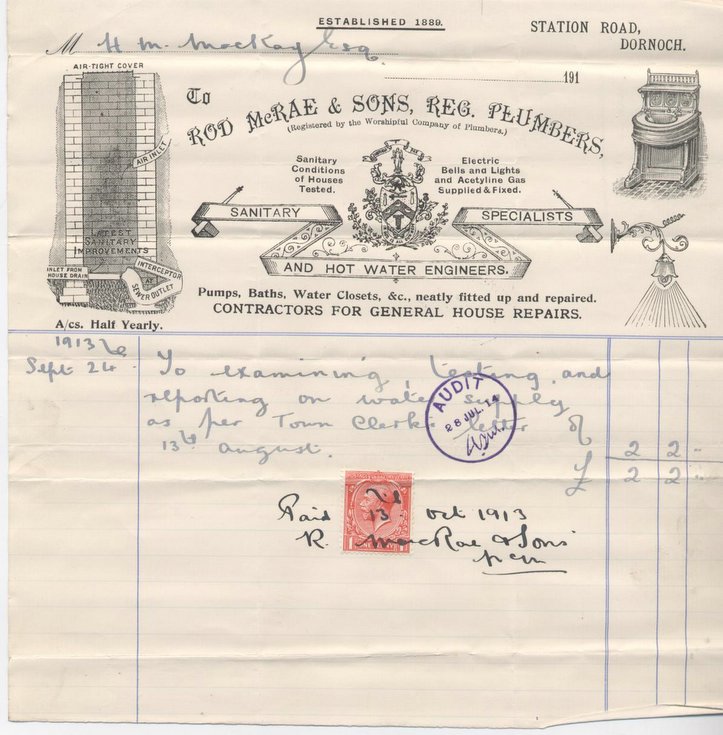 ESTABLISHED 1889.
STATION ROAD,
DORNOCH.
M H. M. Mackay Esq.
191
To
ROD McRAE & SONS, REG. PLUMBERS,
(Registered by the Worshipful Company of Plumbers.)
AIR-TIGHT COVER
AIR INLET
LATEST
SANITARY
IMPROVEMENTS
INLET FROM
HOUSE DRAIN
INTERCEPTOR
SEWER OUTLET
A/cs. Half Yearly.
Sanitary
Conditions
of Houses
Tested.
Electric
Bells and Lights
and Acetyline Gas
Supplied & Fixed.
SANITARY SPECIALISTS
AND HOT WATER ENGINEERS.
Pumps, Baths, Water Closets, &c., neatly fitted up and repaired.
CONTRACTORS FOR GENERAL HOUSE REPAIRS.
1913
Sept 24 To examining, testing and
reporting on water supply
as per Town Clerks letter of
13th august. 2 2 "
£ 2 2 "
AUDIT
28 JUL. 14
Paid 13 Oct 1913
R. MacRae & Sons